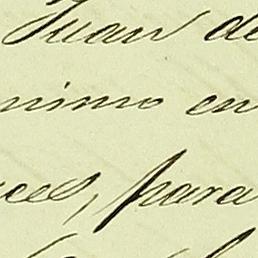 Juan de
nimo en
ces, para